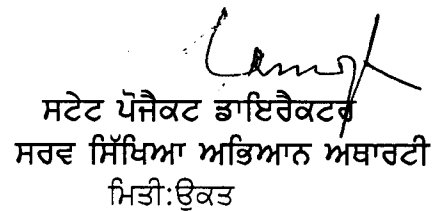 ਸਟੇਟ ਪੋਜੈਕਟ ਡਾਇਰੈਕਟਰ
ਸਰਵ ਸਿੱਖਿਆ ਅਭਿਆਨ ਅਥਾਰਟੀ
ਮਿਤੀ:ਉਕਤ